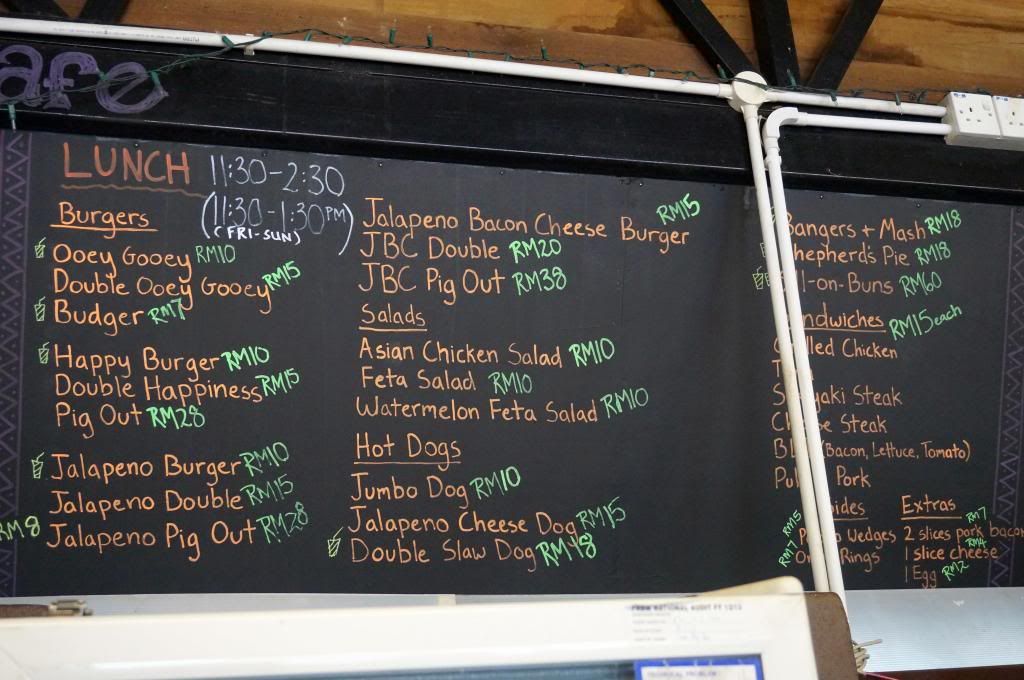 afe
LUNCH 11:30-2:30
(11:30-1:30PM)
(FRI-SUN)
Burgers
Ooey Gooey RM10
Double Ooey Gooey RM15
Budger RM7
Happy Burger RM10
Double Happiness RM15
Pig Out RM28
Jalapeno Burger RM10
Jalapeno Double RM15
Jalapeno Pig Out RM28
RM8
Jalapeno Bacon Cheese Burger RM15
JBC Double RM20
JBC Pig Out RM38
Salads
Asian Chicken Salad RM10
Feta Salad RM10
Watermelon Feta Salad RM10
Hot Dogs
Jumbo Dog RM10
Jalapeno Cheese Dog RM15
Double Slaw Dog RM18
Bangers + Mash RM18
Shepherd's Pie RM18
ll-on-Buns RM60
ndwiches RM15 each
lled Chicken
yaki Steak
Steak
(Bacon, Lettuce, Tomato)
Pork
ides
RM15 Wedges
RM7 Rings
Extras
2 slices pork bacon RM7
1 slice cheese RM4
1 Egg RM2